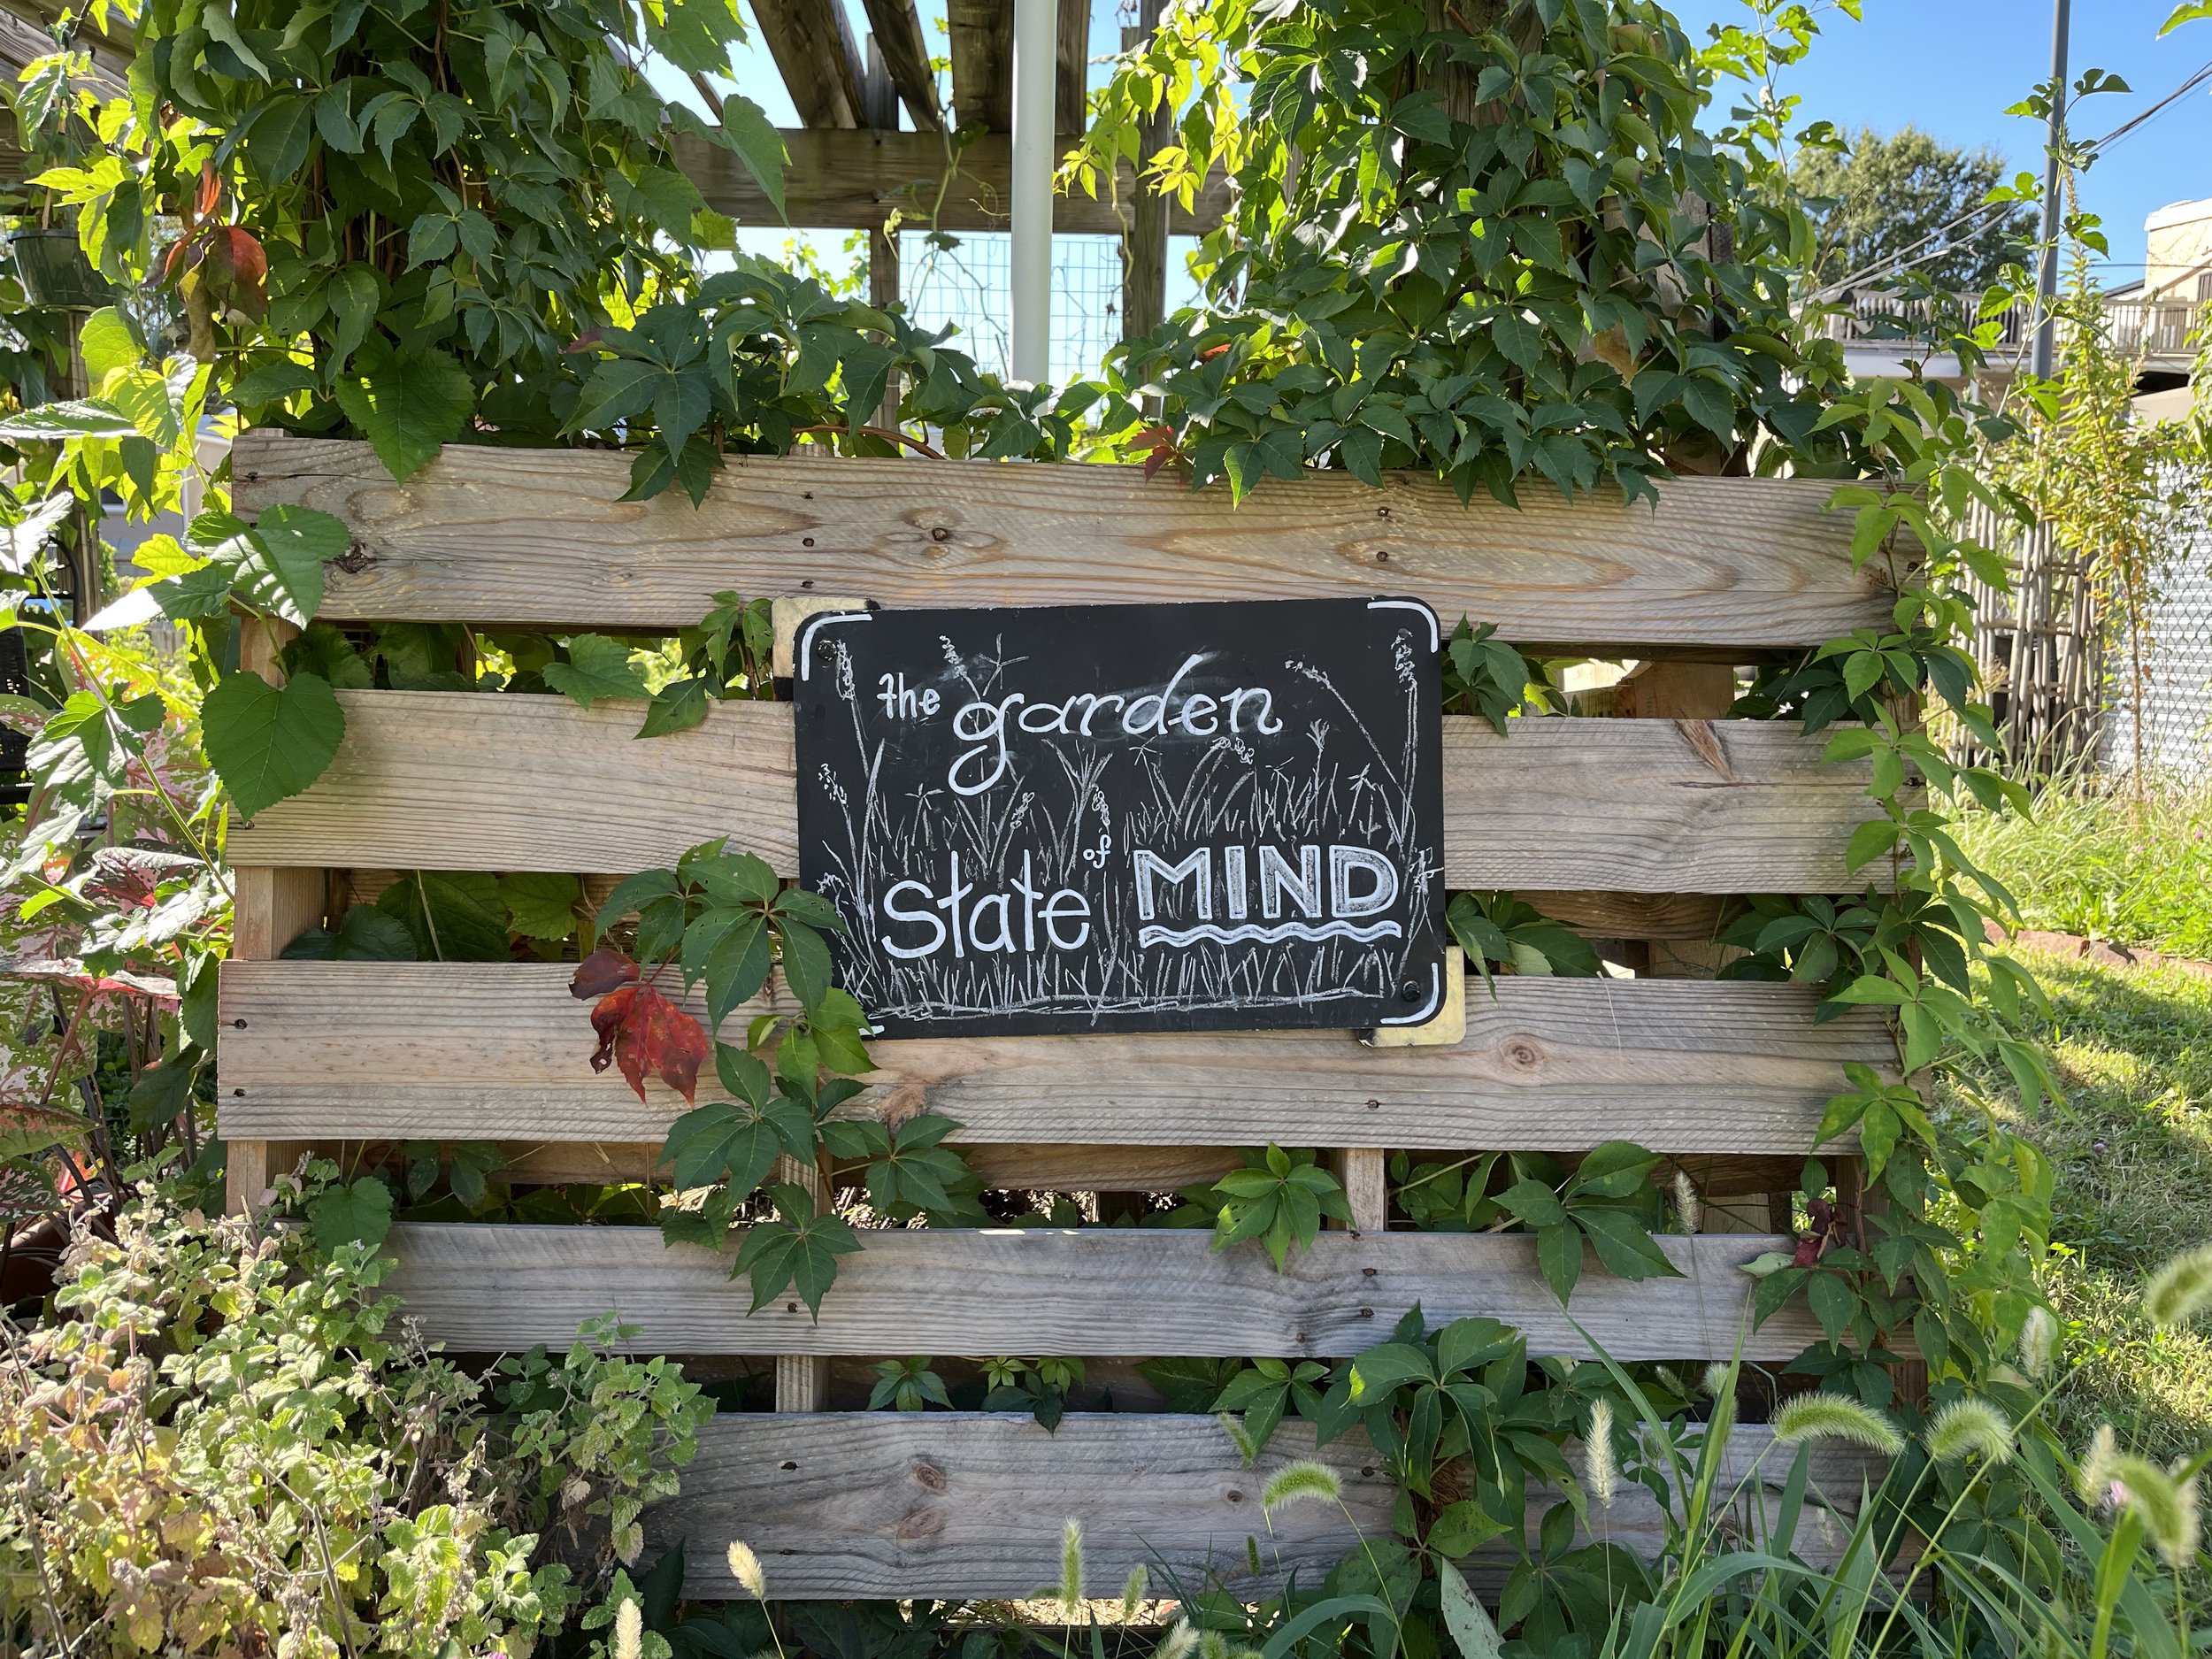 the garden
State of MIND